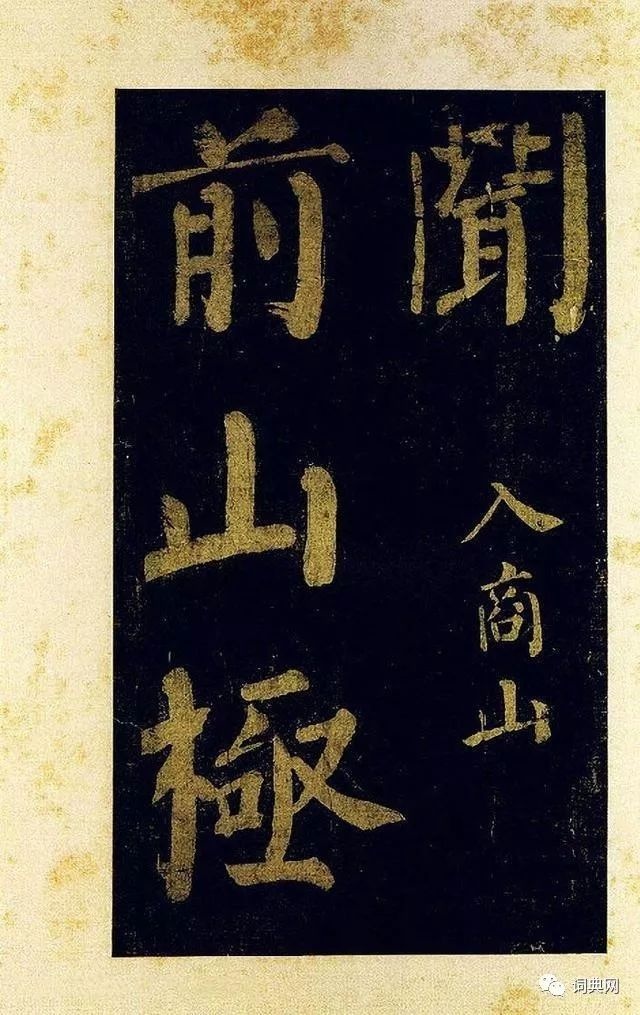 聞
入商山
前山極
词典网